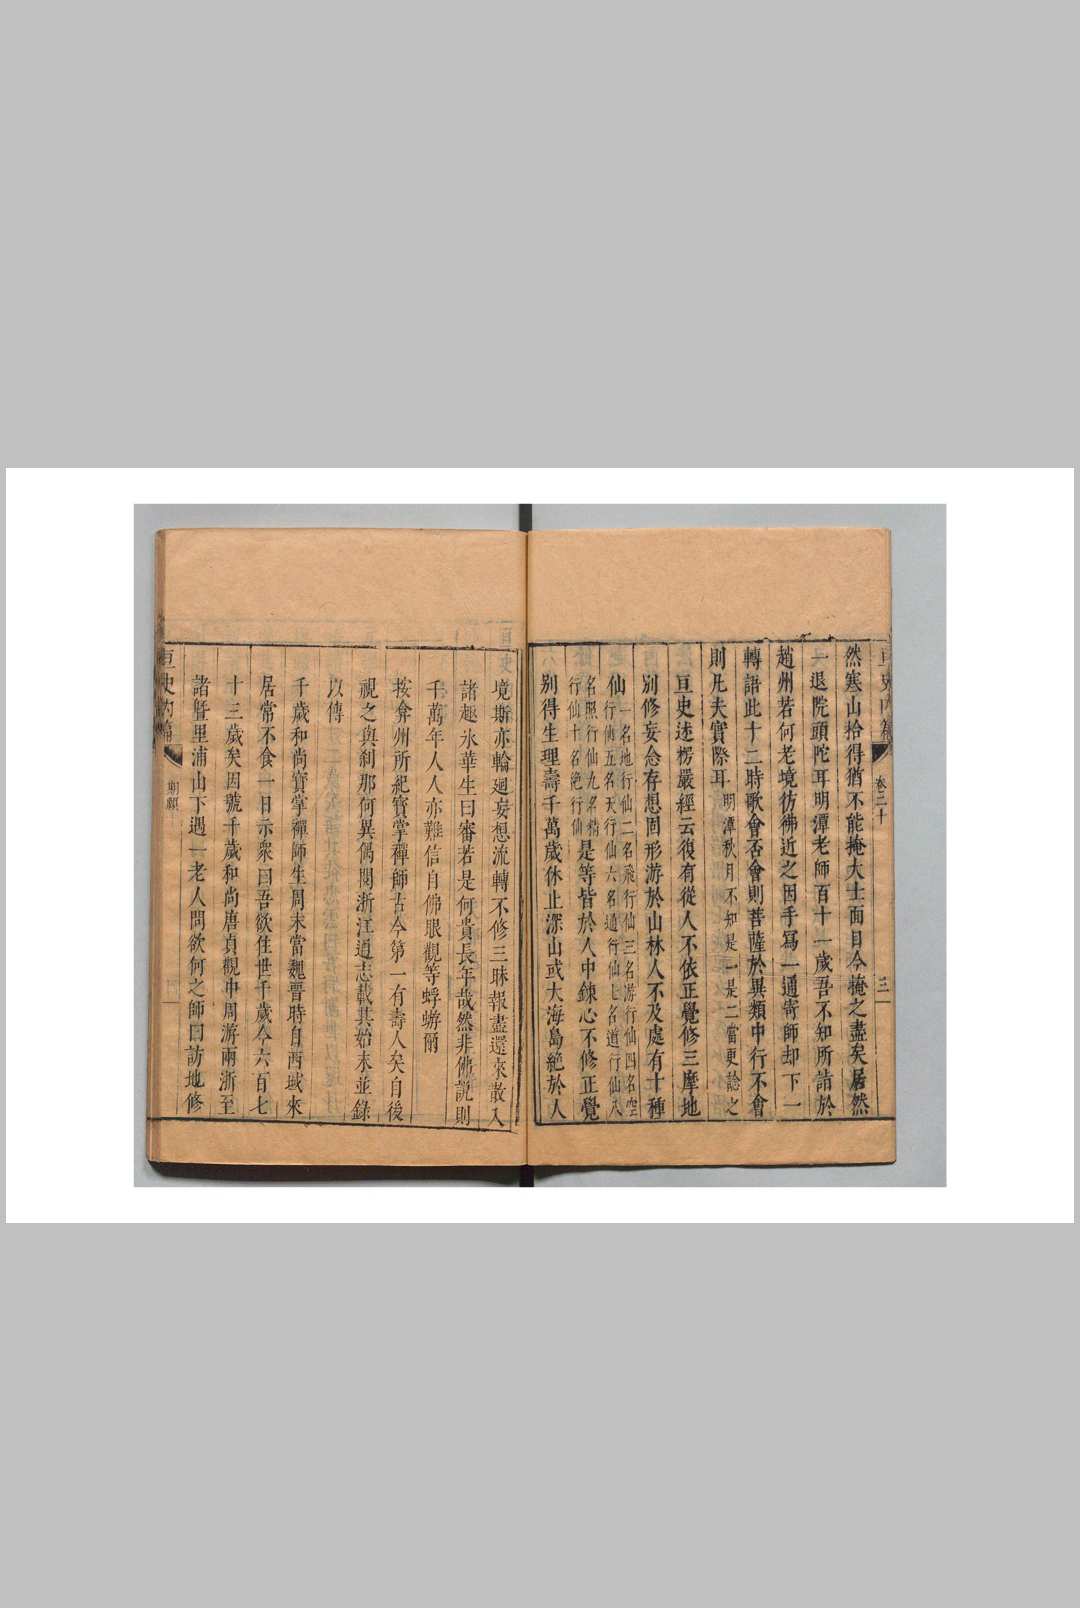 亘史內篇
卷二十
三
然寒山拾得猶不能掩大士面目今掩之盡矣居然
一退院頭陀耳明潭老師百十一歲吾不知所詣於
趙州若何老境彷彿近之因手寫一通寄師却下一
轉語此十二時歌會否會則菩薩於異類中行不會
則凡夫實際耳明潭秋月不知是一是二當更諗之
亘史述楞嚴經云復有從人不依正覺修三摩地
別修妄念存想固形游於山林人不及處有十種
仙一名地行仙二名飛行仙三名游行仙四名空
行仙五名天行仙六名通行仙七名道行仙八
名照行仙九名精
行仙十名絶行仙
是等皆於人中鍊心不修正覺
別得生理壽千萬歲休止深山或大海島絶於人
境斯亦輪廻妄想流轉不修三昧報盡還來散入
諸趣氷華生曰審若是何貴長年哉然非佛說則
千萬年人人亦難信自佛眼觀等蜉蝣爾
按弇州所紀寶掌禪師古今第一有壽人矣自後
視之與刹那何異偶閱浙江通志載其始末並錄
以傳
千歲和尚寶掌禪師生周末當魏晉時自西域來
居常不食一日示衆曰吾欲住世千歲今六百七
十三歲矣因號千歲和尚唐貞觀中周游兩浙至
諸曁里浦山下遇一老人問欲何之師曰訪地修
亘史內篇
期頥